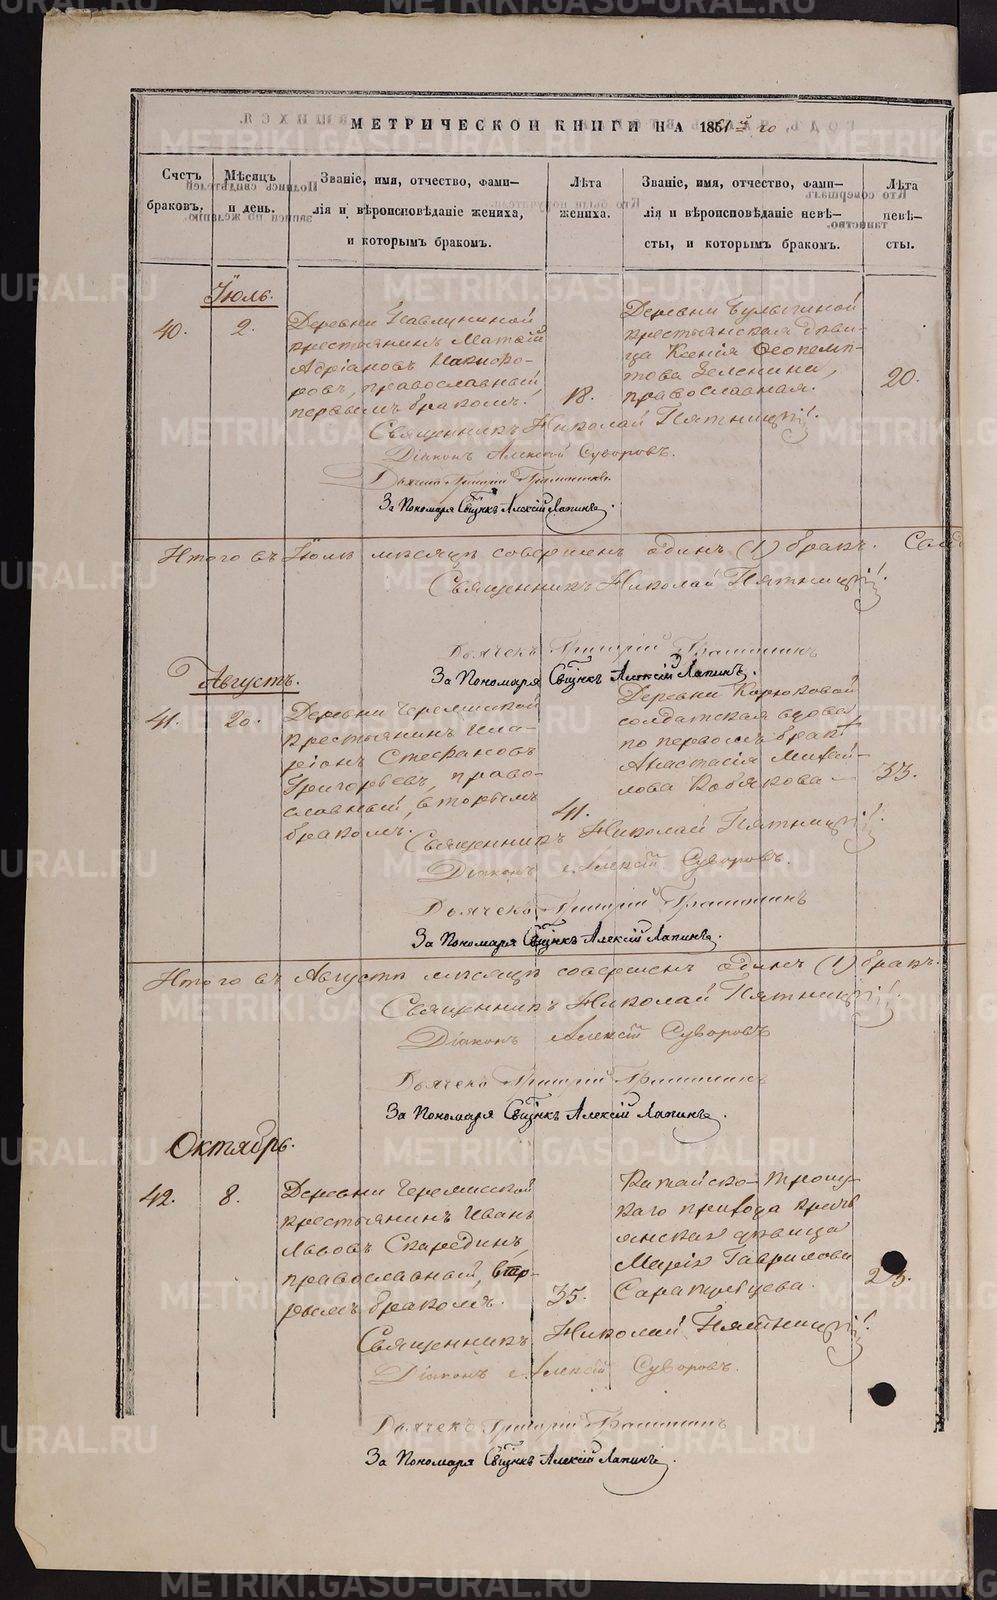 МЕТРИЧЕСКОЙ КНИГИ НА 1851й го
Счетъ браковъ.
Мѣсяцъ и день.
Званіе, имя, отчество, фами-
лія и вѣроисповѣданіе жениха,
и которымъ бракомъ.
Лѣта жениха.
Званіе, имя, отчество, фами-
лія и вѣроисповѣданіе невѣ-
сты, и которымъ бракомъ.
Лѣта невѣ-
сты.
Іюль.
40.
2.
Деревни Павлуниной
крестьянинъ Матѳій
Адріановъ Никифо-
ровъ, православный,
первымъ бракомъ.
18.
Деревни Булыгиной
крестьянская дѣви-
ца Ксенія Ѳеопемп-
това Зеленина,
православная.
20.
Священникъ Николай Пятницкій.
Діаконъ Алексѣй Суворовъ.
Дьячекъ Григорій
За Пономаря Свщнкъ Алексій Лапинъ.
Итого въ Іюлѣ мѣсяцѣ совершенъ одинъ (1) бракъ.
Священникъ Николай Пятницкій.
Дьячекъ Григорій
За Пономаря Свщнкъ Алексій Лапинъ.
Августъ.
41.
20.
Деревни Черемисской
крестьянинъ Ила-
ріонъ Стефановъ
Григорьевъ, право-
славный, вторымъ
бракомъ.
41.
Деревни Карюковой
солдатская вдова
по первомъ бракѣ
Анастасія Михай-
лова Кобякова
33.
Священникъ Николай Пятницкій.
Діаконъ Алексій Суворовъ.
Дьячекъ Григорій
За Пономаря Свщнкъ Алексій Лапинъ.
Итого въ Августѣ мѣсяцѣ совершенъ одинъ (1) бракъ.
Священникъ Николай Пятницкій.
Діаконъ Алексій Суворовъ
Дьячекъ Григорій
За Пономаря Свщнкъ Алексій Лапинъ.
Октябрь.
42.
8.
Деревни Черемисской
крестьянинъ Иванъ
Львовъ Скарединъ,
православный, вто-
рымъ бракомъ.
35.
Катайско-Троиц-
каго прихода крестьянская дѣвица
Марія Гаврилова
Сарапульцева.
23.
Священникъ Николай Пятницкій.
Діаконъ Алексій Суворовъ.
Дьячекъ Григорій
За Пономаря Свщнкъ Алексій Лапинъ.
METRIKI.GASO-URAL.RU